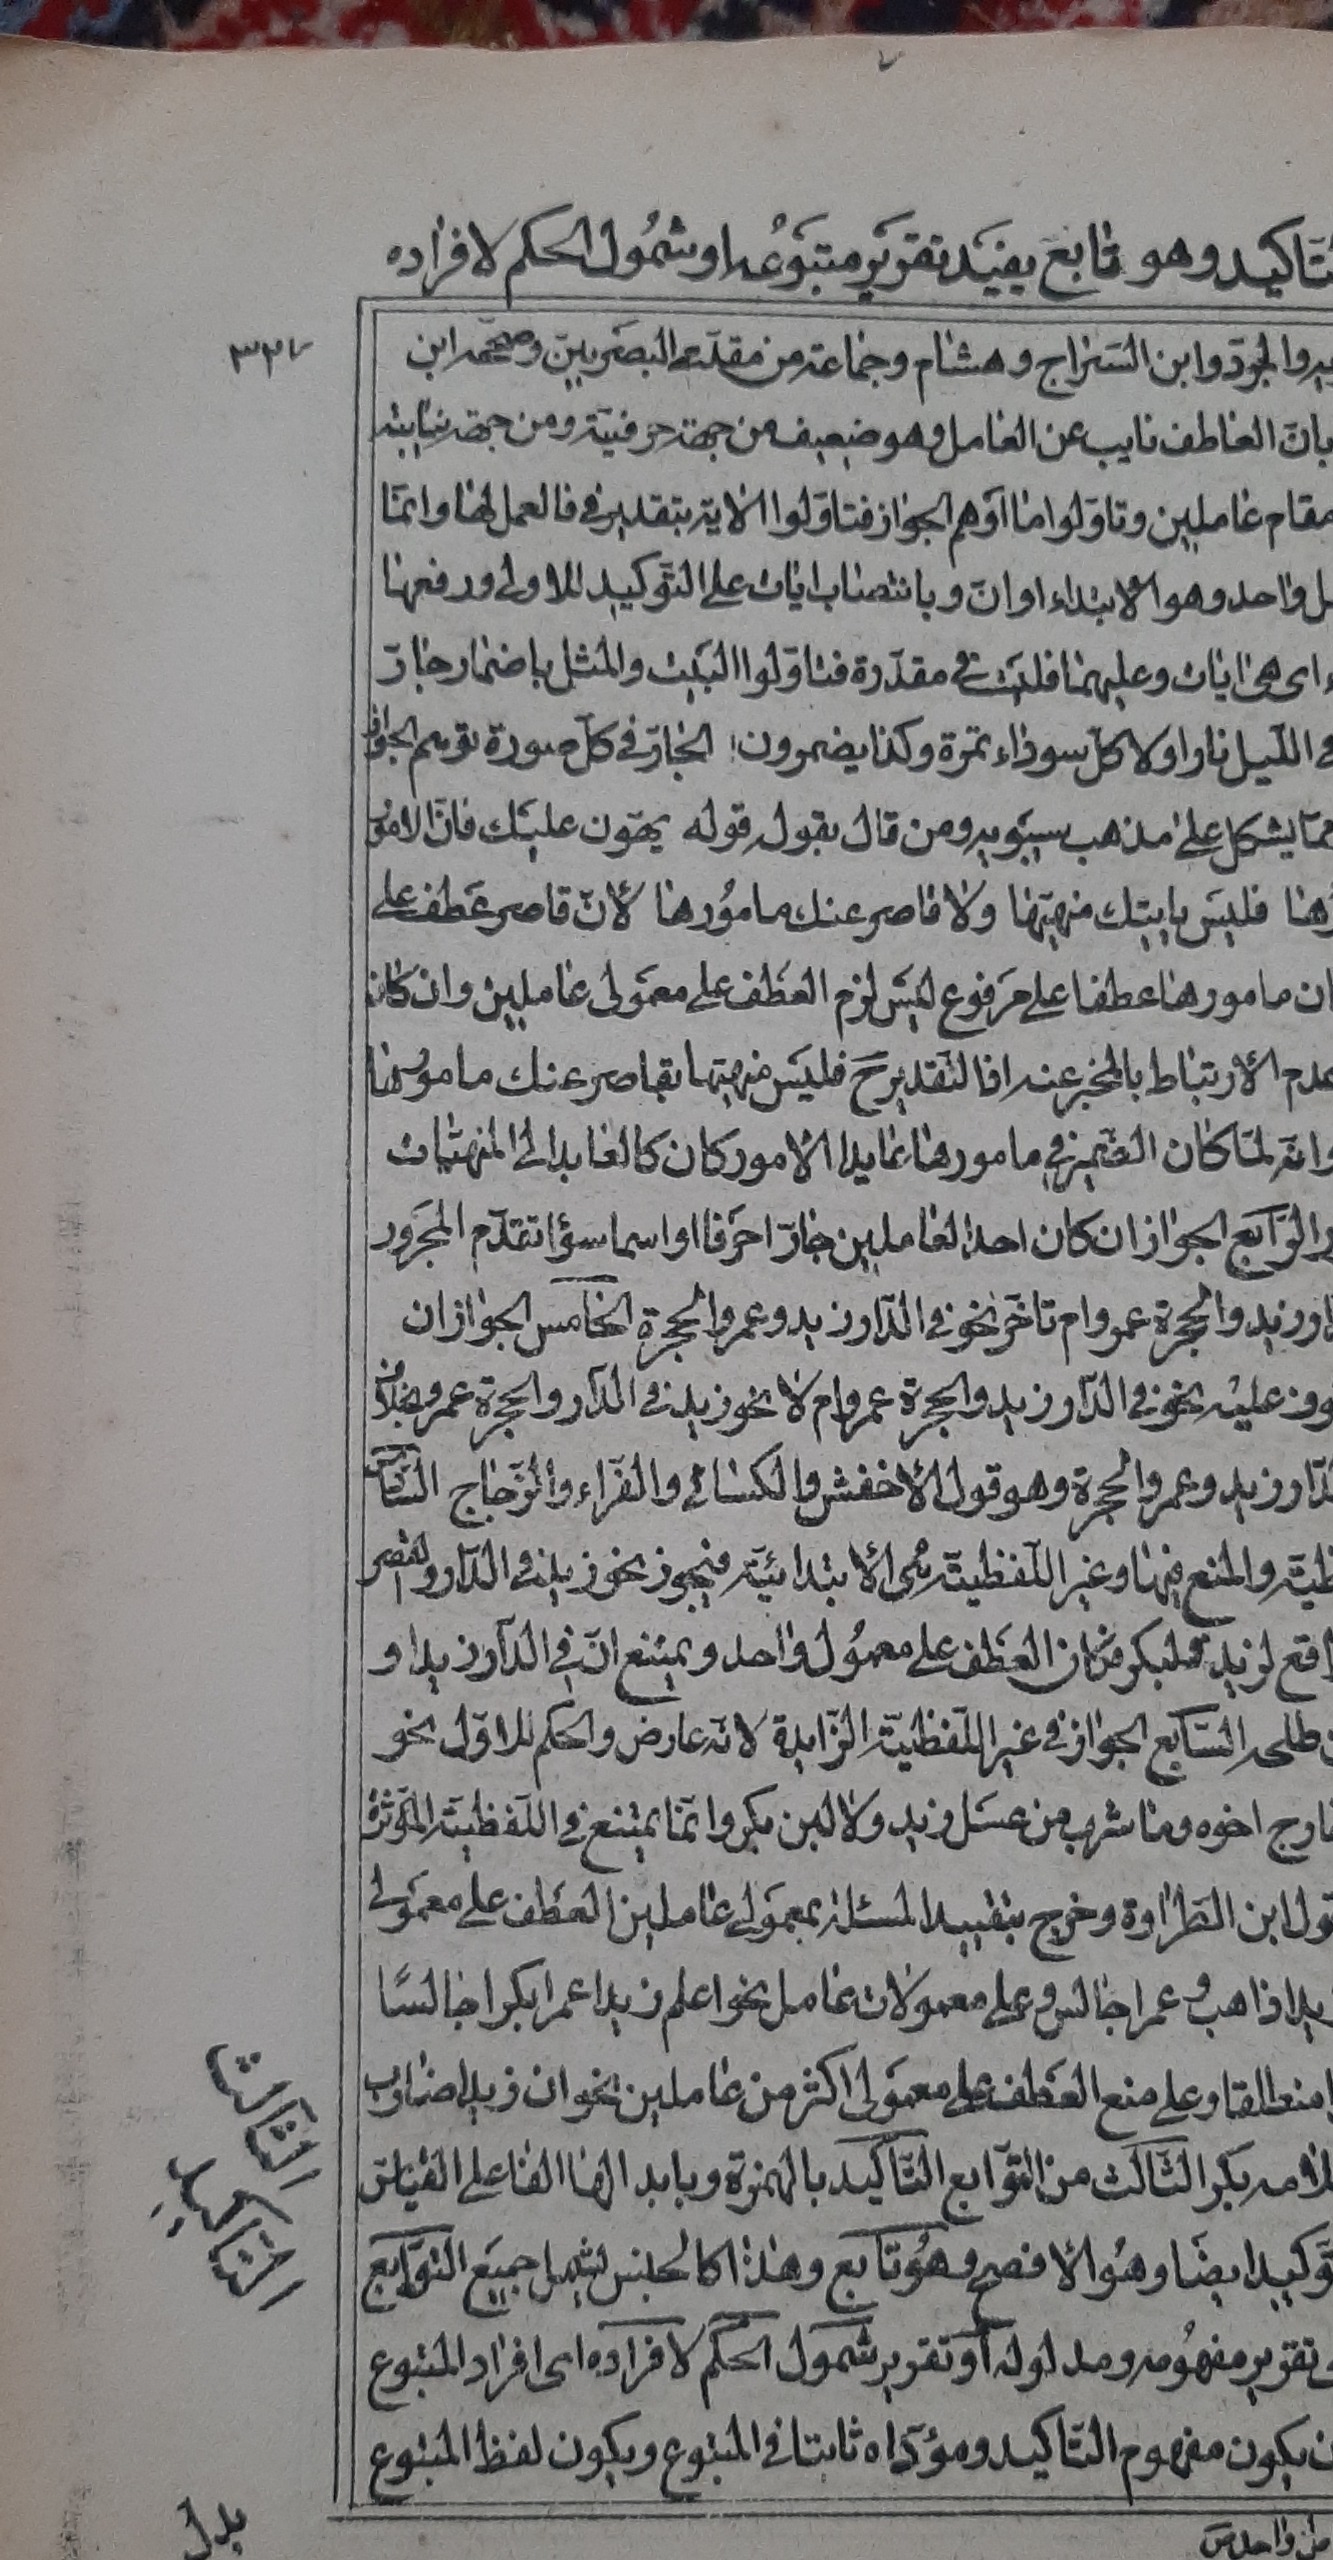 التاكيد وهو تابع يفيد تقرير متبوعه او شمول الحكم لافراده
۳۲۷
والمبرد وابن السراج وهشام وجماعة من متقدمى البصريين وصححه ابن
بان العاطف نايب عن العامل وهو ضعيف من جهة حرفية ومن جهة نيابته
مقام عاملين وتاولوا ما اوهم الجواز فتاولوا الاية بتقدير فى فالعمل لها وانما
واحد وهو الابتداء او ان وبانتصاب ايات على التوكيد للاولى ورفعها
اى هى ايات وعليهما فليست فى مقدرة فتاولوا البيت والمثل باضمار جار
الليل نارا ولا كل سوداء تمرة وكذا يضمرون الجار فى كل صورة توهم الجواز
مما يشكل على مذهب سيبويه ومن قال بقوله قوله يهون عليك فان الامور
فليس باتيك منهيها ولا قاصر عنك مامورها لان قاصر عطف على
ان مامورها عطفا على مرفوع ليس لزم العطف على معمولى عاملين وان كان
عدم الارتباط بالمخبر عنه اذ التقدير ح فليس منهيها بقاصر عنك مامورها
وانه لما كان الضمير فى مامورها عايدا الامور كان كالعايد الى المنهيات
الرابع الجواز ان كان احد العاملين جارا حرفا او اسما سواء تقدم المجرور
زيد والحجرة عمرو ام تاخر نحو فى الدار زيد وعمرو الحجرة الخامس الجواز ان
عليه نحو فى الدار زيد والحجرة عمرو ام لا نحو زيد فى الدار والحجرة عمرو بخلاف
زيد وعمرو الحجرة وهو قول الاخفش والكسائى والفراء والزجاج السادس
والمنع فيها وغير اللفظية هى الابتدائية فيجوز نحو زيد فى الدار والقصر
لزيد ولبكر من ان العطف على معمول واحد ويمتنع ان فى الدار زيدا و
طلحه السابع الجواز فى غير اللفظية الزايدة لانه عارض والحكم للاول نحو
اخوه وما شرب من عسل زيد ولا لبن بكر وانما يمتنع فى اللفظية المؤثرة
ابن الطراوة وخرج بتقييد المسئلة بمعمولى عاملين العطف على معمولى
ذاهب وعمرا جالس وعلى معمولات عامل نحو اعلم زيدا عمرا بكرا جالسا
وعلى منع العطف على معمولى اكثر من عاملين نحو ان زيدا ضارب
بكر الثالث من التوابع التاكيد بالهمزة وبابدالها الفا على القياس
الثالث التاكيد
ايضا وهو الافصح وهو تابع وهذا كالجنس يشمل جميع التوابع
تقرير مفهومه ومدلوله او تقرير شمول الحكم لافراده اى افراد المتبوع
يكون مفهوم التاكيد ومؤداه ثابتا فى المتبوع ويكون لفظ المتبوع
يدل